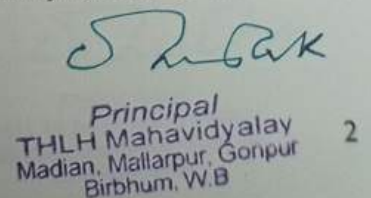 Principal
THLH Mahavidyalay
Madian, Mallarpur, Gonpur
Birbhum, W.B
2